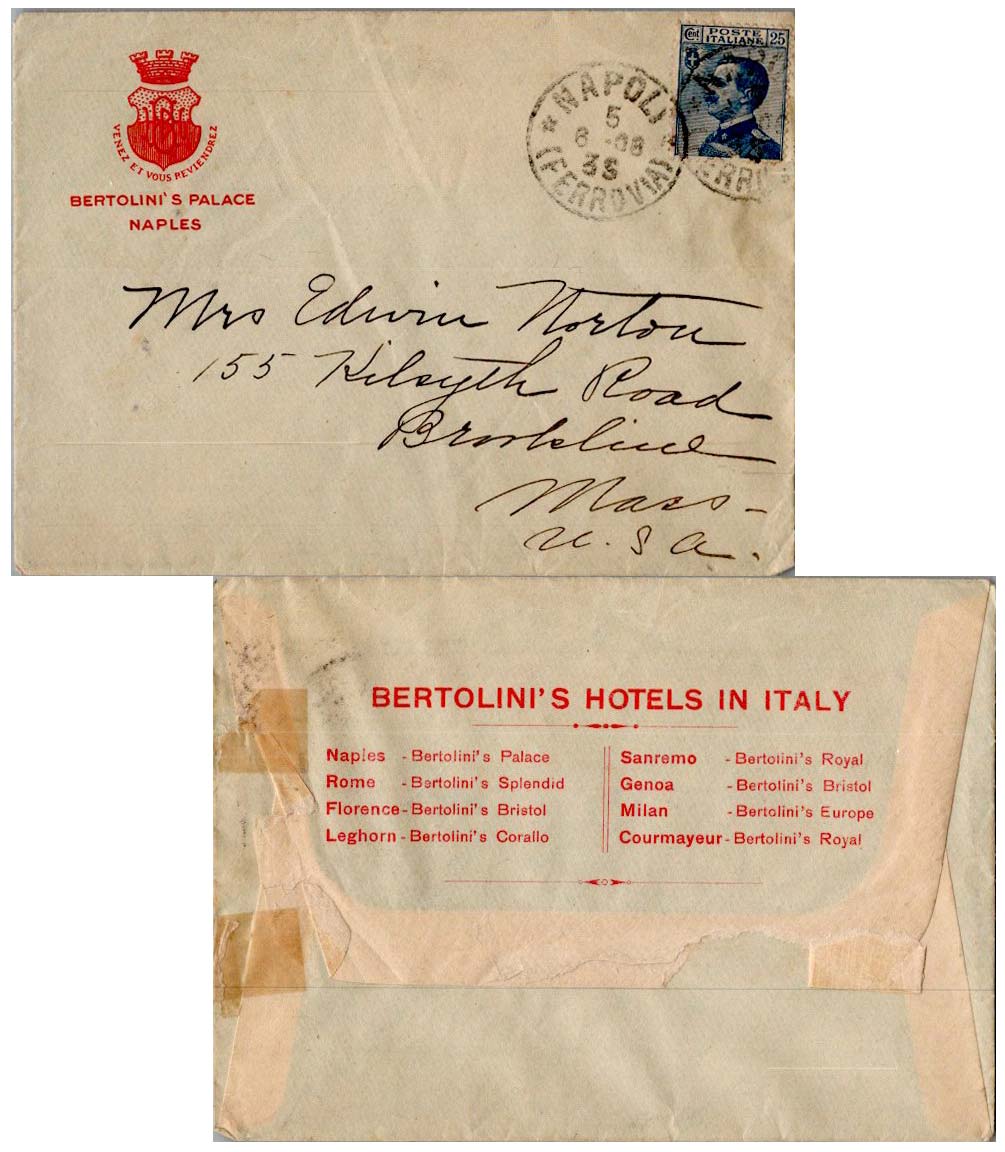 VENEZ ET VOUS REVIENDREZ
BERTOLINI'S PALACE
NAPLES
* NAPOLI *
5
6 -08
3S
(FERROVIA)
Cent. POSTE ITALIANE 25
Mrs Edwin Norton
155 Kilsyth Road
Brookline
Mass-
U.S.A.
BERTOLINI'S HOTELS IN ITALY
Naples - Bertolini's Palace
Rome - Bertolini's Splendid
Florence - Bertolini's Bristol
Leghorn - Bertolini's Corallo
Sanremo - Bertolini's Royal
Genoa - Bertolini's Bristol
Milan - Bertolini's Europe
Courmayeur - Bertolini's Royal